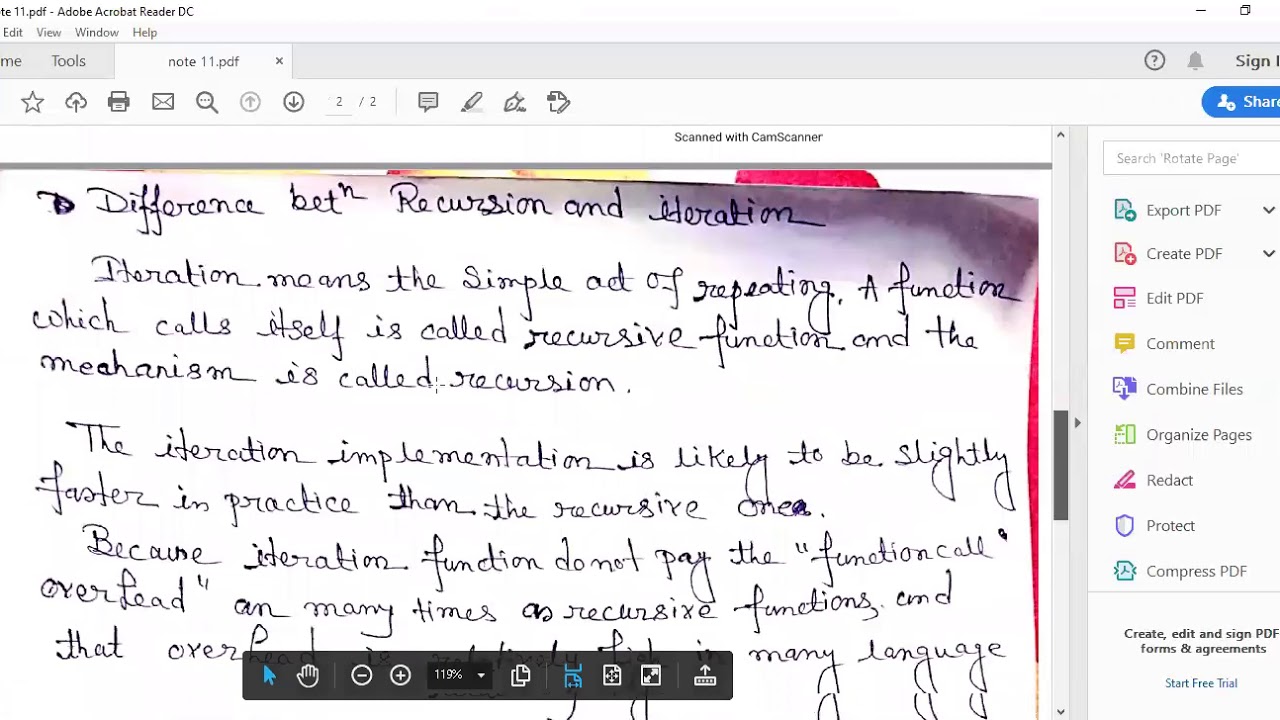 te 11.pdf - Adobe Acrobat Reader DC
Edit View Window Help
me Tools note 11.pdf × Sign I
2 / 2 Share
Scanned with CamScanner
Search 'Rotate Page'
Difference betⁿ Recursion and iteration
Iteration means the simple act of repeating. A function
which calls itself is called recursive function and the
mechanism is called recursion.
The iteration implementation is likely to be slightly
faster in practice than the recursive one.
Because iteration function do not pay the "function call
overhead" an many times as recursive functions, and
that overhead is relatively high in many language
119%
Export PDF
Create PDF
Edit PDF
Comment
Combine Files
Organize Pages
Redact
Protect
Compress PDF
Create, edit and sign PDF
forms & agreements
Start Free Trial